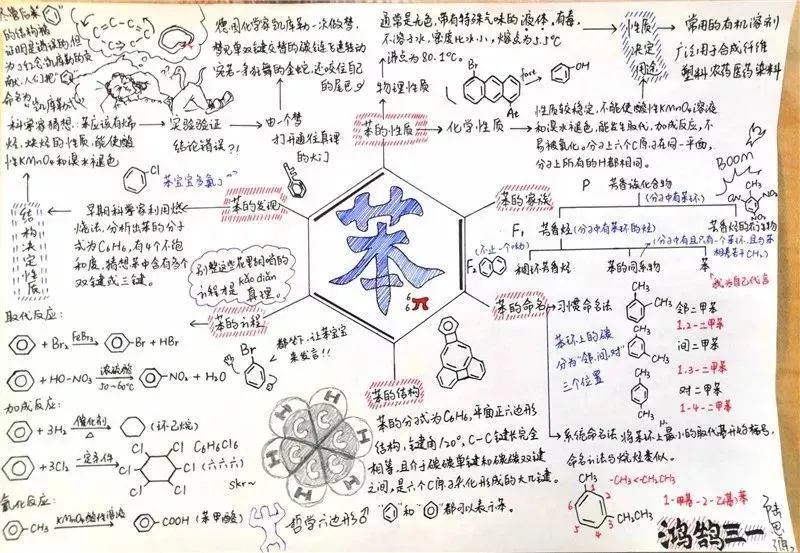 的结构被
证明是错误的,但
命名为"凯库勒式"
科学家猜想:苯应该有烯
烃、炔烃的性质,能使酸
性KMnO₄和溴水褪色
实验验证
结论错误?!
由一个梦
打开通往真理
的大门
德国化学家凯库勒一次做梦,
梦见单双键交替的碳链飞速转动
宛若一条狂舞的金蛇,还咬住自己
的尾巴
通常是无色,带有特殊气味的液体,有毒,
不溶于水,密度比水小,熔点为5.5℃
沸点为80.1℃
物理性质
性质
决定
用途
常用的有机溶剂
广泛用于合成纤维
塑料 农药 医药 染料
Br
At
OH
苯的性质
化学性质
性质较稳定,不能使酸性KMnO₄溶液
和溴水褪色,能发生取代、加成反应,不
易被氧化。分子上六个C原子在同一平面,
分子上所有的H都相同。
BOOM
Cl
苯宝宝多氯了
苯的发现
早期科学家利用燃
烧法,分析出苯的分子
式为C₆H₆,有4个不饱
和度,猜想苯中含有多个
双键或三键。
结构决定性质
苯
6
6
π
别整这些花里胡哨的
kǎo diǎn
方程才是真理。
苯的方程
都坐下,让苯宝宝
来发言!!
Br
苯的家族
P 芳香族化合物
(分子中有苯环)
F₁ 芳香烃(分子中有苯环的烃)
芳香烃的衍生物
CH₃
O₂N
NO₂
NO₂
F₂
(不止一个哟)
稠环芳香烃
苯的同系物
(分子中有且只有一个苯环,且与苯
相差若干CH₂)
苯
"我为自己代言"
苯的命名
习惯命名法
苯环上的碳
分为"邻、间、对"
三个位置
CH₃
CH₃
邻二甲苯
1,2-二甲苯
CH₃
CH₃
间二甲苯
1,3-二甲苯
CH₃
CH₃
对二甲苯
1-4-二甲苯
系统命名法:将苯环上最小的取代基开始标号,
命名方法与烷烃类似。
CH₃
1
2
3
4
5
6
CH₂CH₃
-CH₃<-CH₂CH₃
1-甲基-2-乙(基)苯
取代反应:
+ Br₂ FeBr₃ Br + HBr
+ HO-NO₂ 浓硫酸 50~60℃ NO₂ + H₂O
加成反应:
+ 3H₂ 催化剂 △ (环己烷)
+ 3Cl₂ 一定条件 Cl Cl Cl Cl Cl Cl C₆H₆Cl₆
(六六六)
skr~
氧化反应:
CH₃ KMnO₄酸性溶液 COOH (苯甲酸)
苯的结构
H H H H H H
C C C C C C
哲学六边形♂
苯的分子式为C₆H₆,平面正六边形
结构,键角120°,C-C键长完全
相等,且介于碳碳单键和碳碳双键
之间,是六个C原子杂化形成的大π键。
和 都可以表示苯。
鸿鹄三一